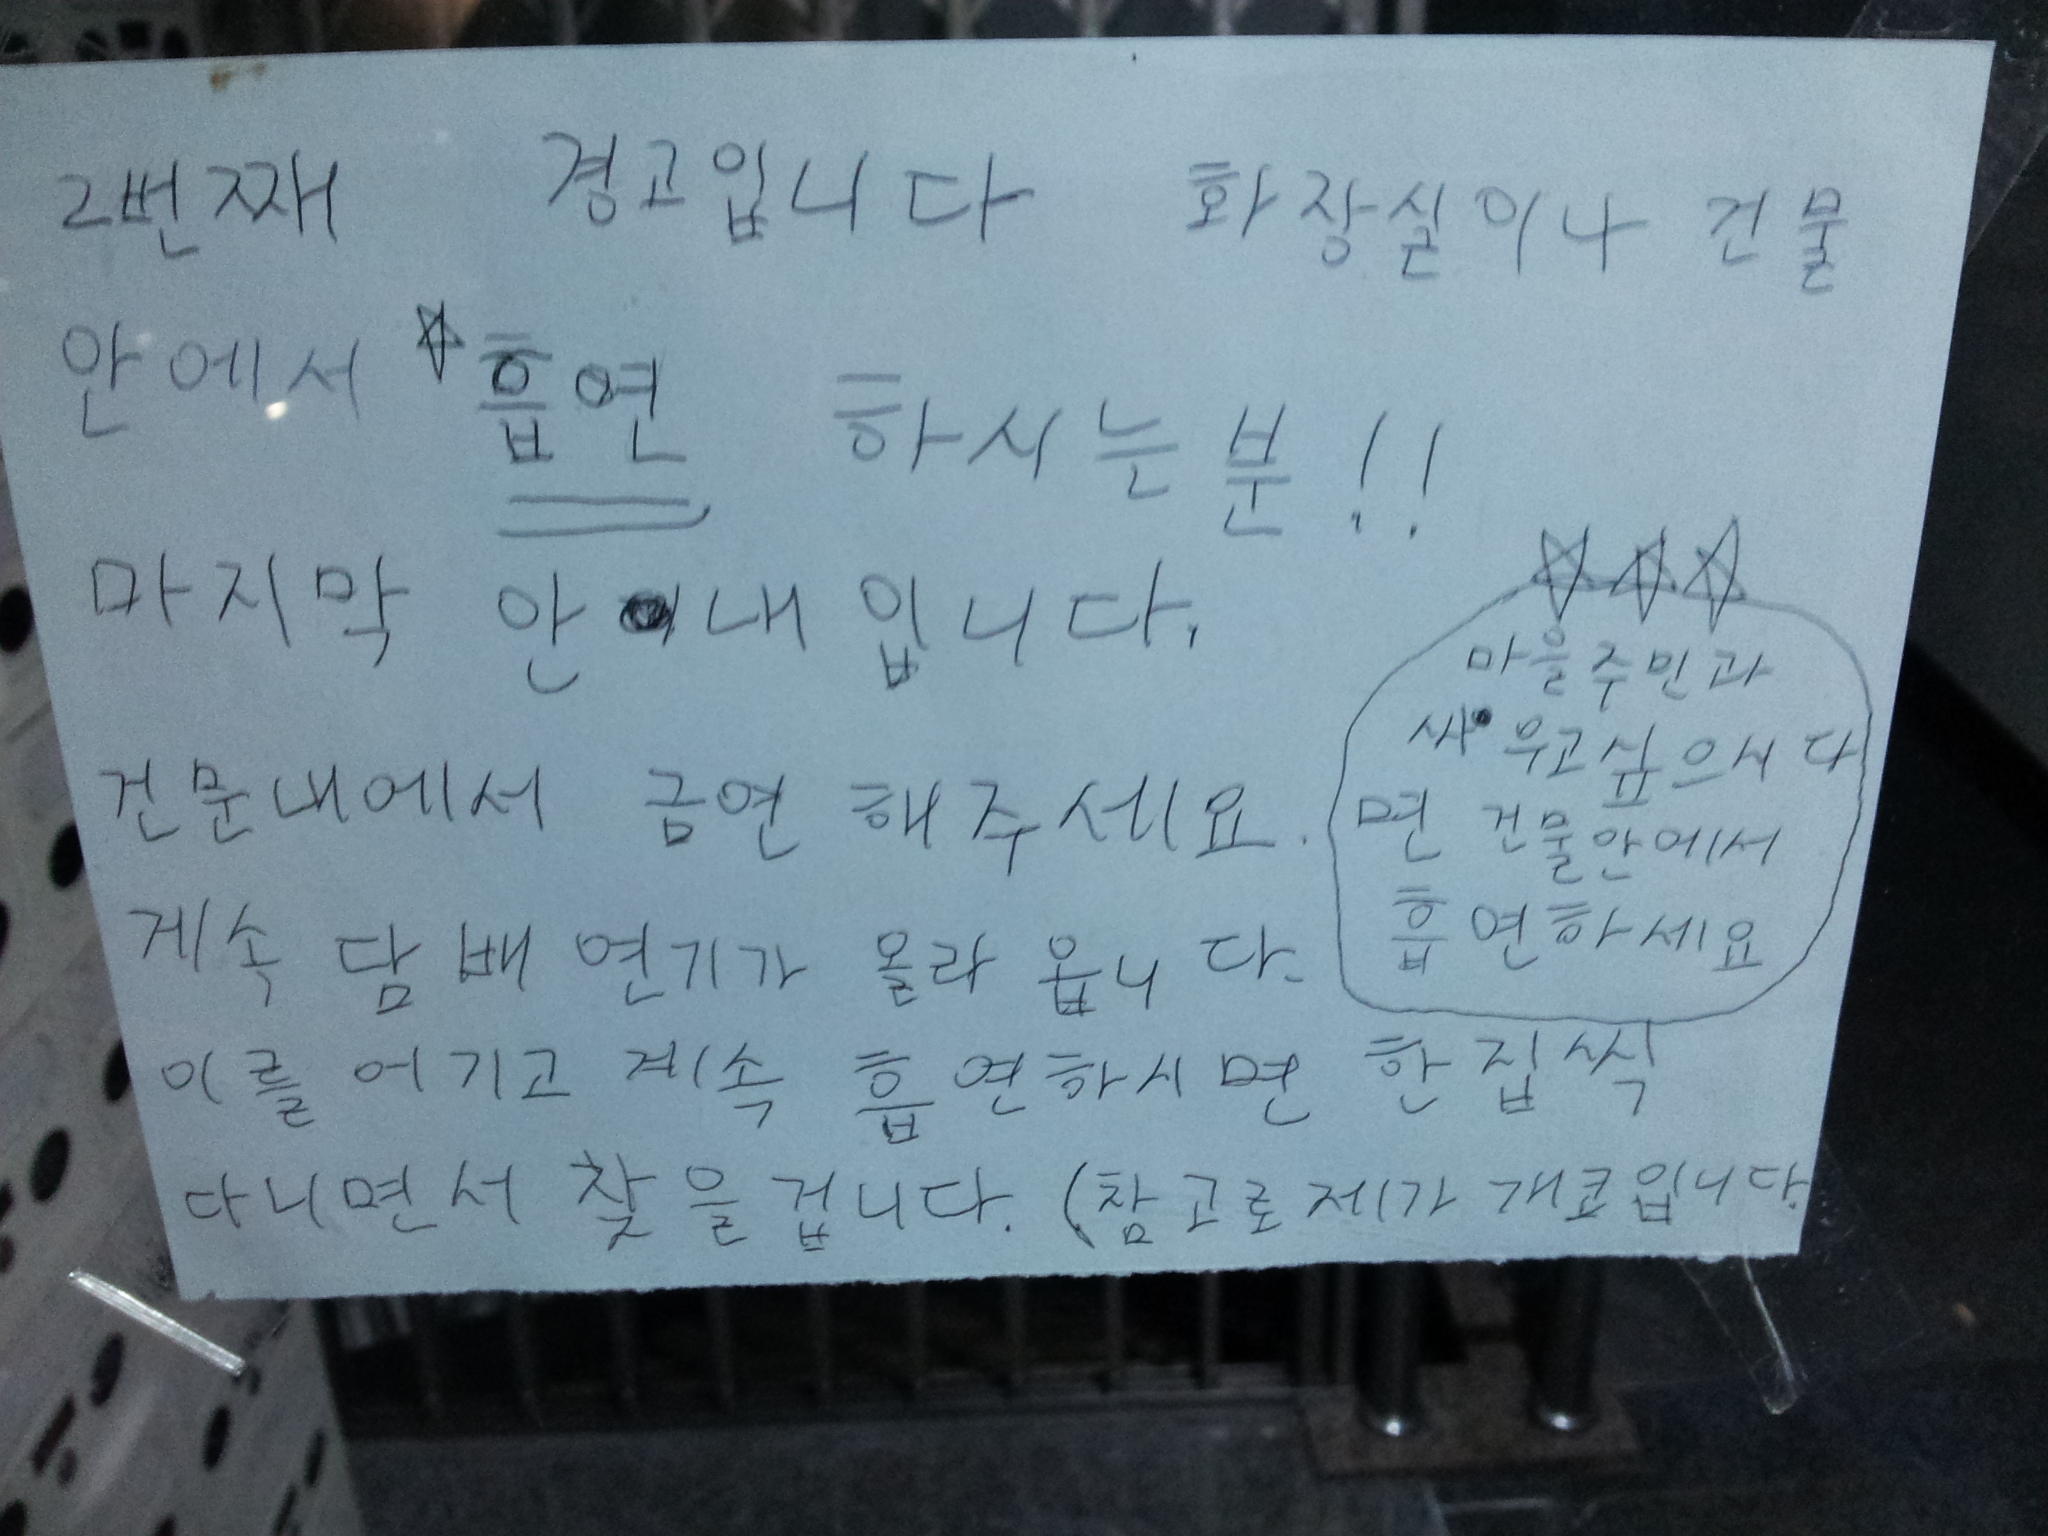 2번째 경고입니다 화장실이나 건물
안에서 ☆흡연 하시는분!!
마지막 안내입니다.
건문내에서 금연 해주세요.
계속 담배 연기가 올라 옵니다.
이를 어기고 계속 흡연하시면 한집씩
다니면서 찾을겁니다. (참고로 제가 개코입니다.
☆☆☆
마을주민과
싸우고싶으시다
면 건물안에서
흡연하세요